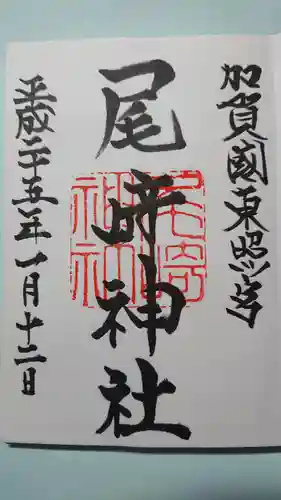 加賀國東照宮
尾崎神社
平成二十五年一月十二日
尾崎
神社